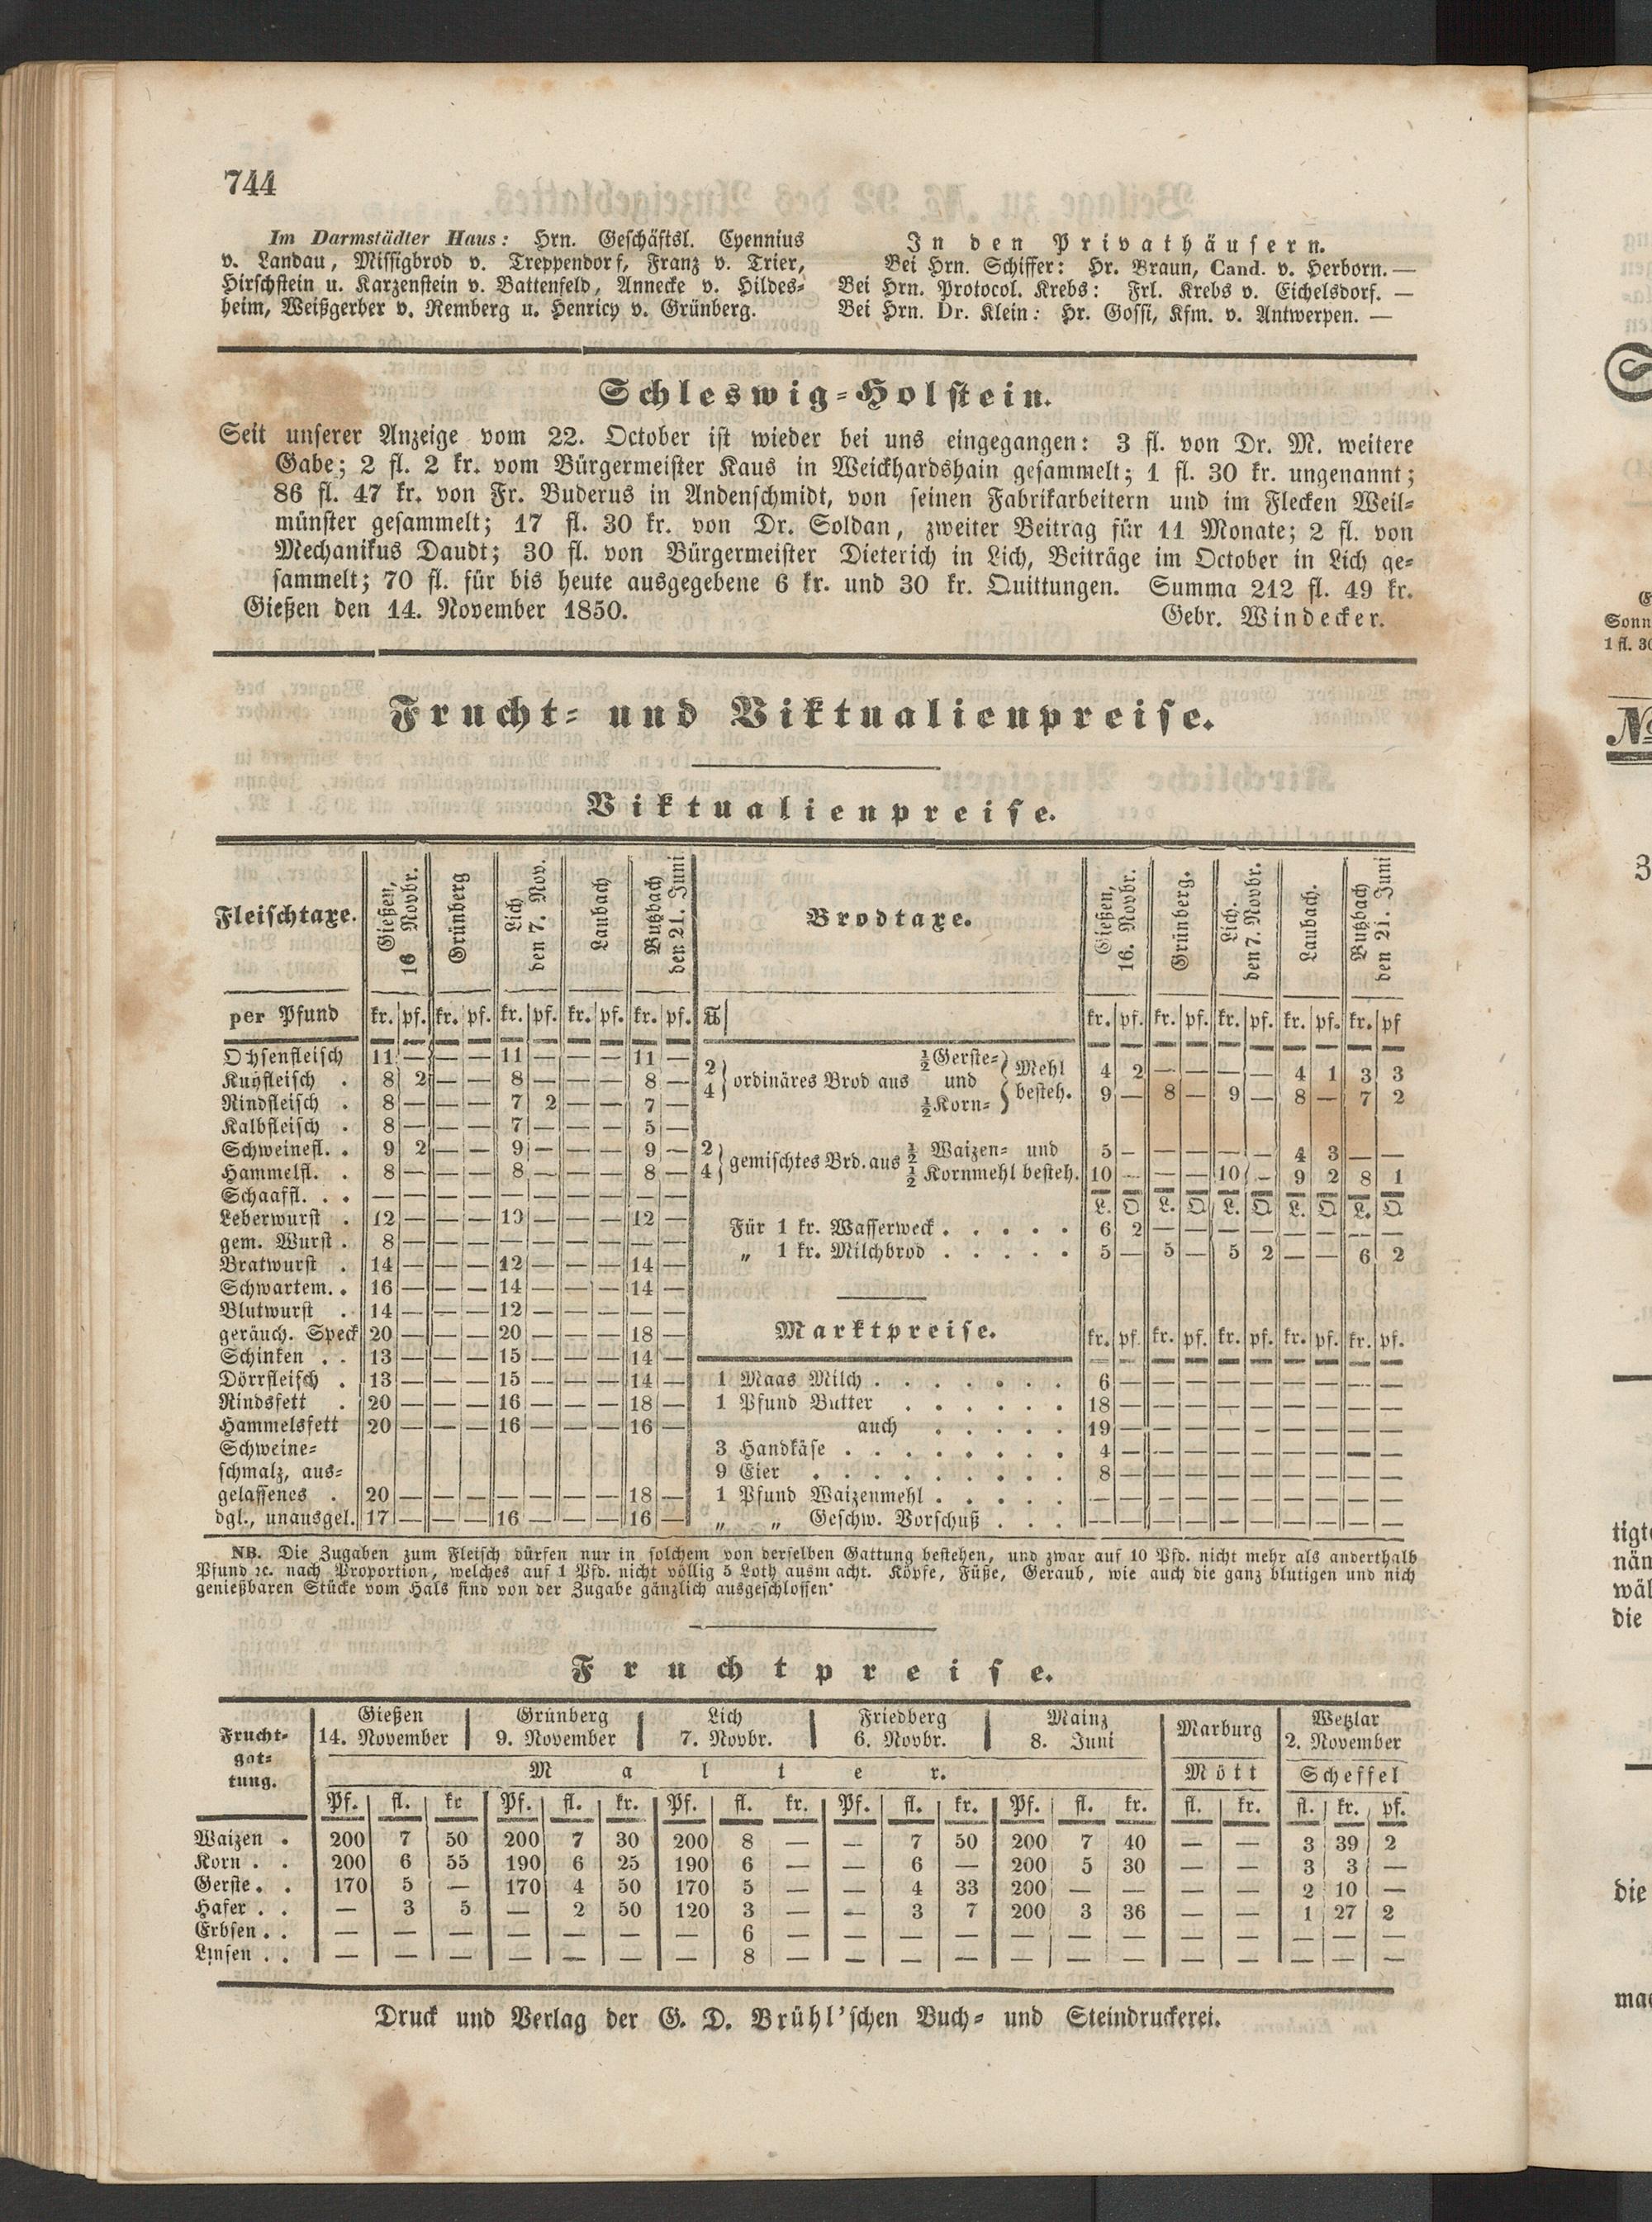 744
Im Darmstädter Haus: Hrn. Geschäftsl. Cyennius
v. Landau, Missigbrod v. Treppendorf, Franz v. Trier,
Hirschstein u. Karzenstein v. Battenfeld, Annecke v. Hildes-
heim, Weißgerber v. Remberg u. Henricy v. Grünberg.
In den Privathäusern.
Bei Hrn. Schiffer: Hr. Braun, Cand. v. Herborn. —
Bei Hrn. Protocol. Krebs: Frl. Krebs v. Eichelsdorf. —
Bei Hrn. Dr. Klein: Hr. Gossi, Kfm. v. Antwerpen. —
Schleswig-Holstein.
Seit unserer Anzeige vom 22. October ist wieder bei uns eingegangen: 3 fl. von Dr. M. weitere
Gabe; 2 fl. 2 kr. vom Bürgermeister Kaus in Weickhardshain gesammelt; 1 fl. 30 kr. ungenannt;
86 fl. 47 kr. von Fr. Buderus in Andenschmidt, von seinen Fabrikarbeitern und im Flecken Weil-
münster gesammelt; 17 fl. 30 kr. von Dr. Soldan, zweiter Beitrag für 11 Monate; 2 fl. von
Mechanikus Daudt; 30 fl. von Bürgermeister Dieterich in Lich, Beiträge im October in Lich ge-
sammelt; 70 fl. für bis heute ausgegebene 6 kr. und 30 kr. Quittungen. Summa 212 fl. 49 kr.
Gießen den 14. November 1850. Gebr. Windecker.
Frucht- und Viktualienpreise.
Viktualienpreise.
Fleischtaxe. Gießen, 16 Novbr. Grünberg Lich den 7. Nov. Laubach Butzbach den 21. Juni
per Pfund kr. pf. kr. pf. kr. pf. kr. pf. kr. pf.
Ochsenfleisch 11 — — — 11 — — — 11 —
Kuhfleisch . 8 2 — — 8 — — — 8 —
Rindfleisch . 8 — — — 7 2 — — 7 —
Kalbfleisch . 8 — — — 7 — — — 5 —
Schweinefl. . 9 2 — — 9 — — — 9 —
Hammelfl. . 8 — — — 8 — — — 8 —
Schaaffl. . . — — — — — — — — — —
Leberwurst . 12 — — — 13 — — — 12 —
gem. Wurst . 8 — — — — — — — — —
Bratwurst . 14 — — — 12 — — — 14 —
Schwartem. . 16 — — — 14 — — — 14 —
Blutwurst . 14 — — — 12 — — — — —
geräuch. Speck 20 — — — 20 — — — 18 —
Schinken . . 13 — — — 15 — — — 14 —
Dörrfleisch . 13 — — — 15 — — — 14 —
Rindsfett . 20 — — — 16 — — — 18 —
Hammelsfett 20 — — — 16 — — — 16 —
Schweine-
schmalz, aus-
gelassenes . 20 — — — — — — — 18 —
dgl., unausgel. 17 — — — 16 — — — 16 —
Brodtaxe. Gießen, 16. Novbr. Grünberg. Lich. den 7. Novbr. Laubach. Butzbach den 21. Juni
℔ kr. pf. kr. pf. kr. pf. kr. pf. kr. pf
2 4 ordinäres Brod aus ½ Gerste- und ½ Korn- Mehl besteh.
4 2 — — — — 4 1 3 3
9 — 8 — 9 — 8 — 7 2
2 4 gemischtes Brd. aus ½ Waizen- und ½ Kornmehl besteh.
5 — — — — — 4 3 — —
10 — — — 10 — 9 2 8 1
L. Q L. Q L. Q L. Q L. Q
Für 1 kr. Wasserweck . . . . . 6 2 — — — — — — — —
„ 1 kr. Milchbrod . . . . . 5 — 5 — 5 2 — — 6 2
Marktpreise. kr. pf. kr. pf. kr. pf. kr. pf. kr. pf.
1 Maas Milch . . . . . . . 6 — — — — — — — — —
1 Pfund Butter . . . . . . 18 — — — — — — — — —
auch . . . . . 19 — — — — — — — — —
3 Handkäse . . . . . . . . 4 — — — — — — — — —
9 Eier . . . . . . . . . 8 — — — — — — — — —
1 Pfund Waizenmehl . . . . . — — — — — — — — — —
„ „ Geschw. Vorschuß . . . — — — — — — — — — —
NB. Die Zugaben zum Fleisch dürfen nur in solchem von derselben Gattung bestehen, und zwar auf 10 Pfd. nicht mehr als anderthalb
Pfund ꝛc. nach Proportion, welches auf 1 Pfd. nicht völlig 5 Loth ausmacht. Köpfe, Füße, Geraub, wie auch die ganz blutigen und nich
genießbaren Stücke vom Hals sind von der Zugabe gänzlich ausgeschlossen
Fruchtpreise.
Frucht-gat-tung. Gießen 14. November Grünberg 9. November Lich 7. Novbr. Friedberg 6. Novbr. Mainz 8. Juni Marburg Wetzlar 2. November
Malter. Mött Scheffel
Pf. fl. kr Pf. fl. kr. Pf. fl. kr. Pf. fl. kr. Pf. fl. kr. fl. kr. fl. kr. pf.
Waizen . 200 7 50 200 7 30 200 8 — — 7 50 200 7 40 — — 3 39 2
Korn . . 200 6 55 190 6 25 190 6 — — 6 — 200 5 30 — — 3 3 —
Gerste . . 170 5 — 170 4 50 170 5 — — 4 33 200 — — — — 2 10 —
Hafer . . — 3 5 — 2 50 120 3 — — 3 7 200 3 36 — — 1 27 2
Erbsen . . — — — — — — — 6 — — — — — — — — — — — —
Linsen . . — — — — — — — 8 — — — — — — — — — — — —
Druck und Verlag der G. D. Brühl'schen Buch- und Steindruckerei.
Sonn
1 fl. 30
№
tigt
die